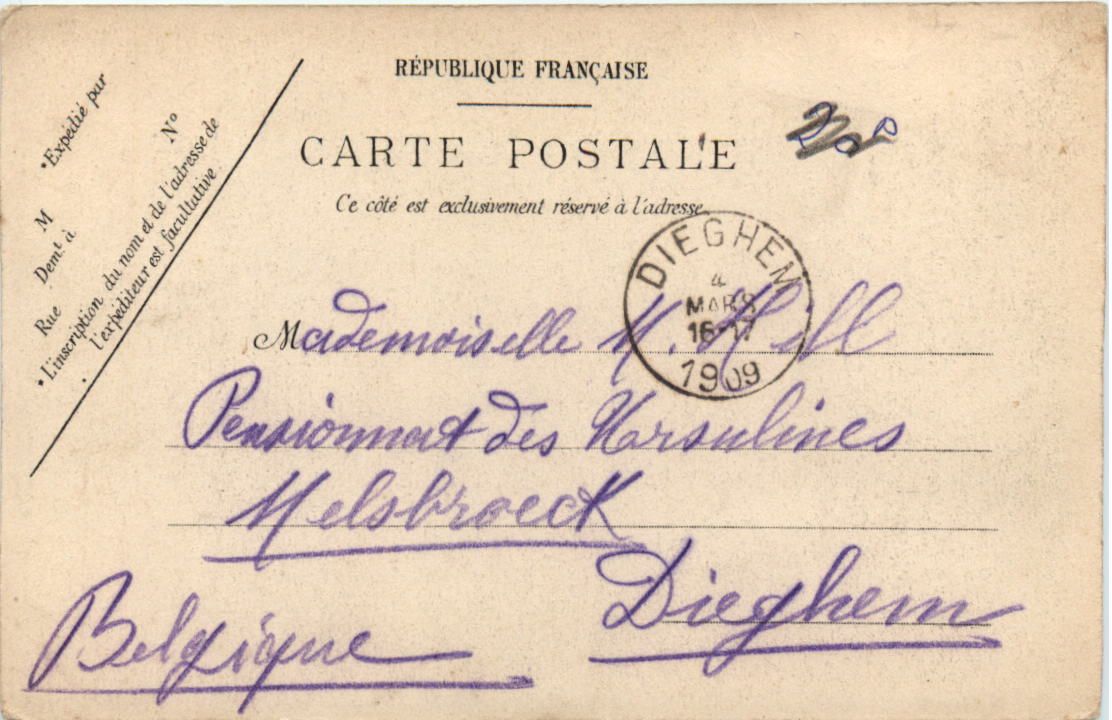 RÉPUBLIQUE FRANÇAISE
CARTE POSTALE
Ce côté est exclusivement réservé à l'adresse
Expédié par
M N°
Demt à
Rue
L'inscription du nom et de l'adresse de
l'expéditeur est facultative.
DIEGHEM
4
MARS
16-17
1909
Mademoiselle M. Hill
Pensionnat des Ursulines
Melsbroeck
Dieghem
Belgique